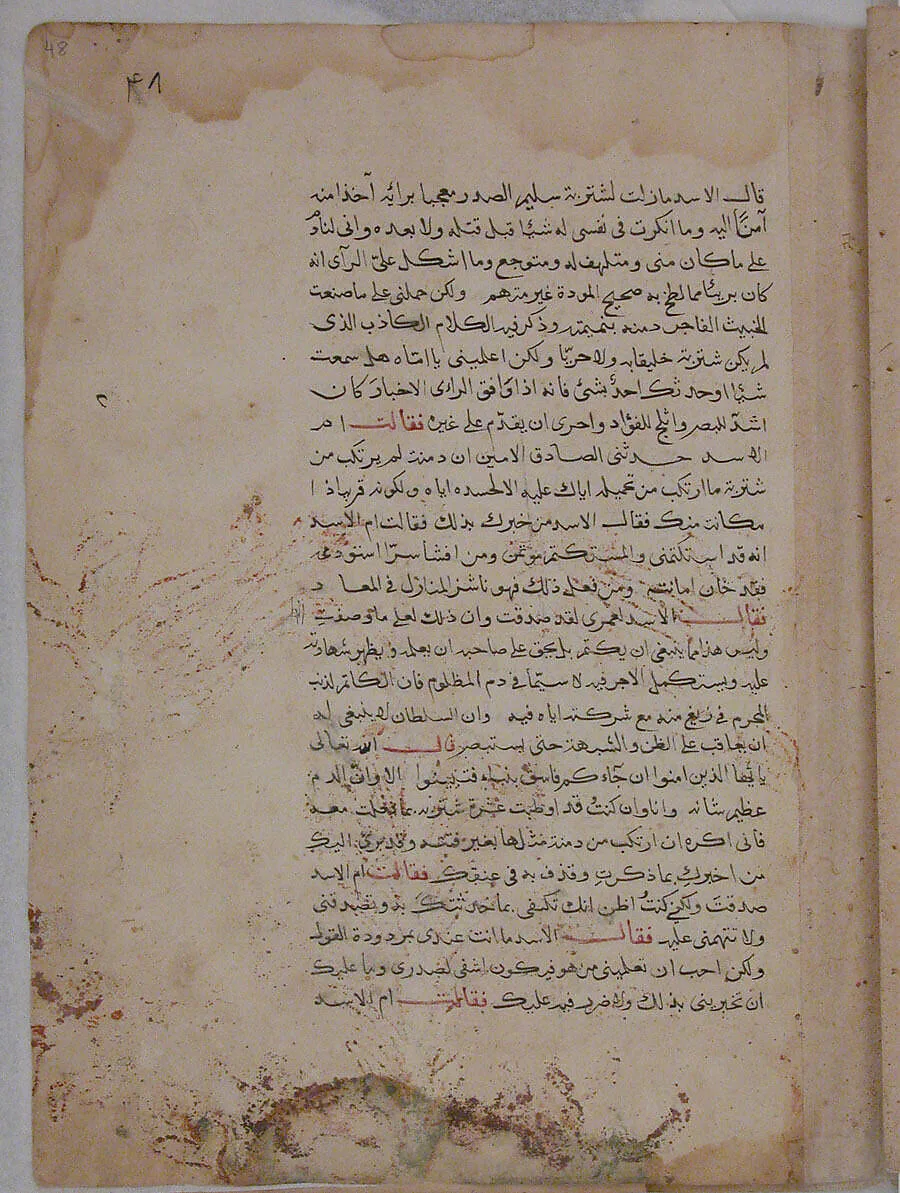 48
٤٨
قال الاسد مازلت لشتربة سليم الصدر معجبا برائه آخذا منه
آمنًا اليه وما انكرت فى نفسى له شيئا قبل قتله ولا بعده وانى لنادم
على ما كان منى ومتلهف له ومتوجع وما اشكل علىّ الرآى انه
كان بريئا مما لطخ به صحيح المودة غير متهم ولكن حملنى على ما صنعت
الخبيث الفاجر دمنه بنميمته وذكر فيه الكلام الكاذب الذى
لم يكن شتربة خليقا به ولا حريّا ولكن اعلمينى يا امتاه هل سمعت
شيئا او حدثك احدٌ بشئ فانه اذا وافق الراى الاخبار كان
اشدّ للبصر واثلج للفؤاد واحرى ان يقدّم على غيره فقالت ام
الاسد حدثنى الصادق الامين ان دمنة لم يرتكب من
شتربة ما ارتكب من تحميله اياك عليه الا لحسده اياه ولكونه قريبا ذا
مكانة منك فقال الاسد من خبرك بذلك فقالت ام الاسد
انه قد استكتمنى والمستكتم مؤتمن ومن افشا سرّا استودعه
فقد خان امانته ومن فعل ذلك فهو ناشز المنازل فى المعاد
فقال الاسد لعمرى لقد صدقت وان ذلك لعلى ما وصفت
وليس هذا مما ينبغى ان يكتم بل يحق على صاحبه ان يعلمه ويظهر شهادته
عليه ويستكمل الاجر فيه لا سيّما فى دم المظلوم فان الكاتم لذنب
المجرم فى منه مع شركته اياه فيه وان السلطان لا ينبغى له
ان يعاقب على الظن والشبهة حتى يستبصر قال الله تعالى
يا ايّها الذين امنوا ان جآءكم فاسق بنباء فتبينوا الا وان الدم
عظيم شانه وانا وان كنتُ قد اوطيت عشوة شتربه بما فعلت معه
فانى اكره ان ارتكب من دمنة مثلها بغير اليك
من اخبرك بما ذكرت وقذف به فى عنقك فقالت ام الاسد
صدقت ولكنى كنتُ اظن انك تكتفى بما حدثتك به وتصدقنى
ولا تتهمنى عليه فقال الاسد ما انت عندى بمردودة القول
ولكن احب ان تعلمينى من هو فيكون اشفى لصدرى وما عليك
ان تخبرينى بذلك ولا ضرر فيه عليك فقالت ام الاسد